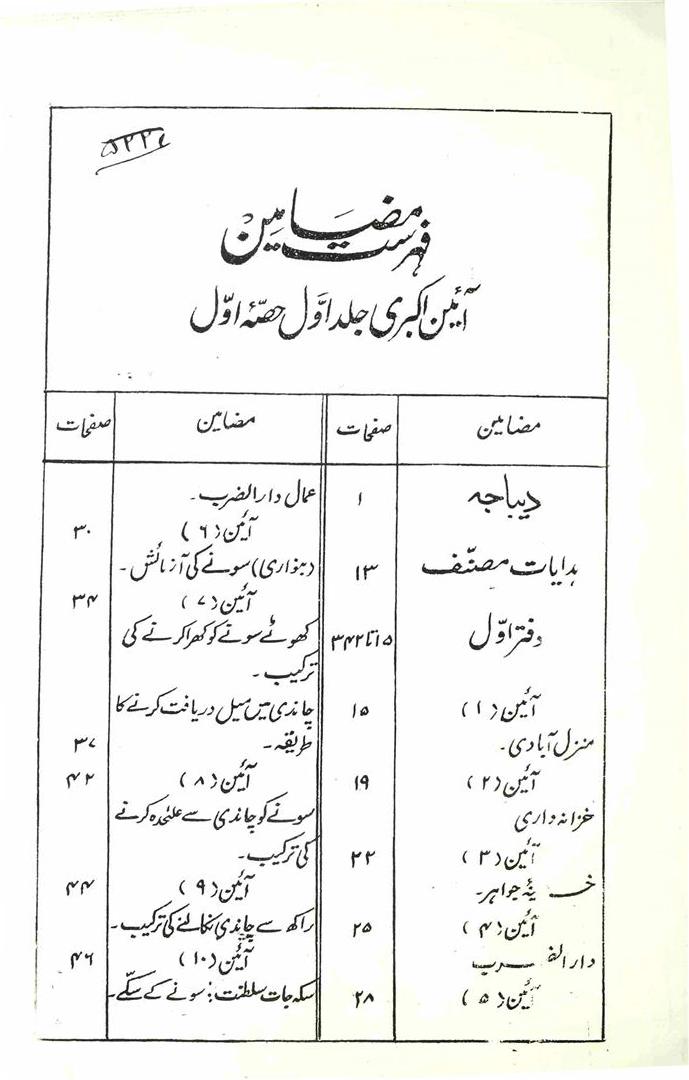 ۵۲۲۷
فہرست مضامین
آئین اکبری جلد اوّل حصّۂ اوّل
مضامین صفحات
دیباجہ ۱
ہدایات مصنّف ۱۳
دفتر اوّل ۱۵ تا ۳۴۲
آئین (۱) ۱۵
منزل آبادی۔
آئین (۲) ۱۹
خزانہ داری
آئین (۳) ۲۲
خزینۂ جواہر۔
آئین (۴) ۲۵
دار الضرب
آئین (۵) ۲۸
مضامین صفحات
عمال دار الضرب۔
آئین (۶) ۳۰
(بنواری) سونے کی آزمائش۔
آئین (۷) ۳۴
کھوٹے سونے کو کھرا کرنے کی
ترکیب۔
چاندی میں میل دریافت کرنے کا
طریقہ۔ ۳۷
آئین (۸) ۴۲
سونے کو چاندی سے علٰحدہ کرنے
کی ترکیب۔
آئین (۹) ۴۴
راکھ سے چاندی نکالنے کی ترکیب۔
آئین (۱۰) ۴۶
سکہ جات سلطنت: سونے کے سکّے۔